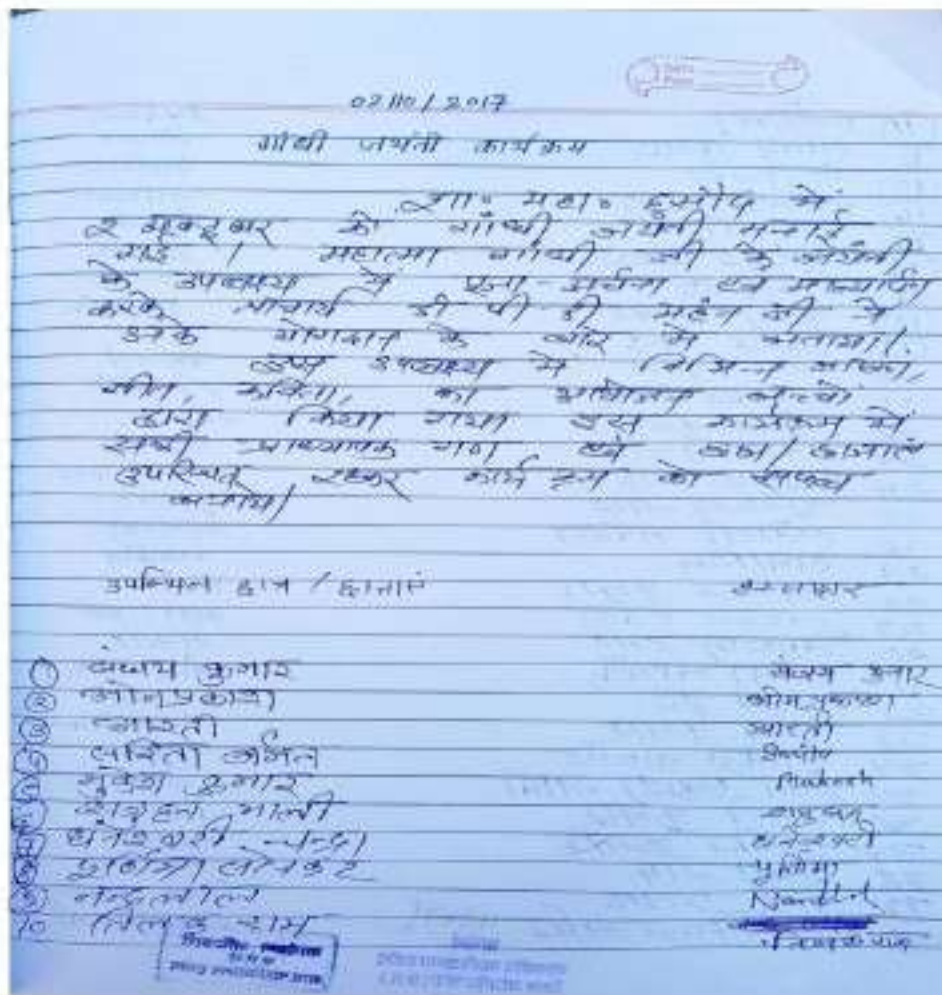 02/10/2017
गाँधी जयंती कार्यक्रम
शा० महा० हसौद में
2 अक्टूबर को गाँधी जयंती मनाई
गई। महात्मा गाँधी जी के जयंती
के उपलक्ष्य में पूजा-अर्चना एवं माल्यार्पण
करके प्राचार्य डी पी डी महंत जी ने
उनके योगदान के बारे में बताया।
इस उपलक्ष्य में विभिन्न भाषण,
गीत, कविता, का आयोजन बच्चों
द्वारा किया गया इस कार्यक्रम में
सभी प्राध्यापक गण एवं छात्र/छात्राएं
उपस्थित रहकर कार्यक्रम को सफल
बनाये।
उपस्थित छात्र / छात्राएं हस्ताक्षर
संजय कुमार संजय कुमार
② ओमप्रकाश ओमप्रकाश
③ आरती आरती
सरिता
मुकेश कुमार Mukesh
धनेश्वरी चन्द्रा धनेश्वरी
पूर्णिमा पूर्णिमा
नन्दलाल Nandlal
10 तिलक राम तिलक राम